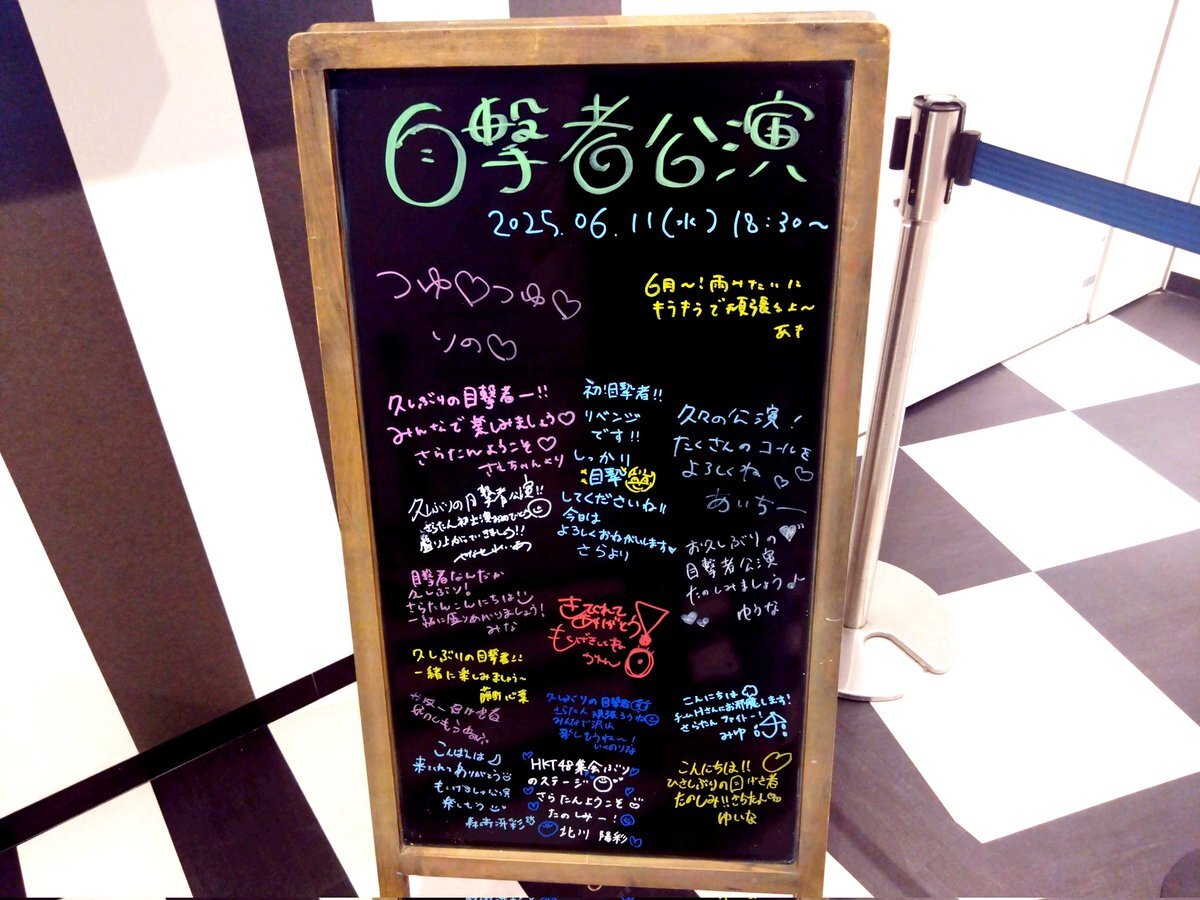 目撃者公演
2025.06.11(水) 18:30~
つゆ♡つゆ♡
りの♡
6月〜!雨みたいに
もうもうで頑張るよ〜
あき
久しぶりの目撃者ー!!
みんなで楽しみましょう♡
さらたんようこそ♡
さえちゃんより
初目撃者!!
リベンジ
です!!
しっかり
目撃
してくださいね!!
今日は
よろしくおねがいします♥
さらより
久々の公演!
たくさんのコールを
よろしくね♡♡
あいちー
久しぶりの目撃者公演!!
さらたん初出演おめでとう
盛り上がっていきましょう!!
お久しぶりの
目撃者公演
たのしみましょう♪
ゆうな
目撃者なんだか
久しぶり!
さらたんこんにちは!!
一緒に盛りあがりましょう!
みな
きてくれて
ありがとう!
もくげきしてね
かれん
久しぶりの目撃者!!
一緒に楽しみましょう~
久しぶりの目撃者
さらたん頑張ろうね
みんなで沢山
楽しもうね〜!
いくのりな
こんにちは
チームHさんにお邪魔します!
さらたんファイトー!
みゆ
こんばんは
来てくれてありがとう
もくげきしゃ公演
楽しもう
HKT48集会ぶり
のステージ
さらたんようこそ
たのしみー!
北川 陽彩♡
こんにちは!!
ひさしぶりの目げき者
たのしみ!!さらたん
ゆいな